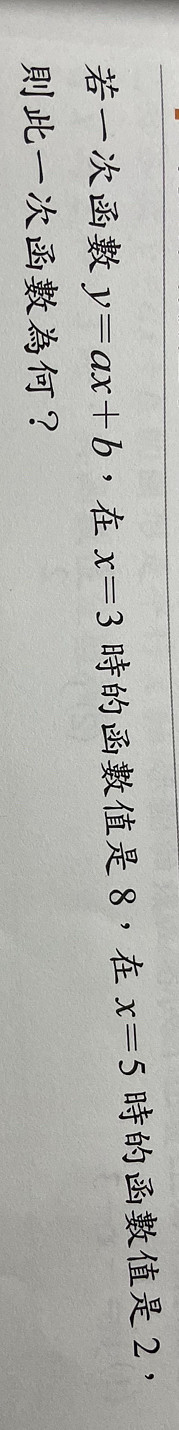 若一次函數 y=ax+b，在 x=3 時的函數值是 8，在 x=5 時的函數值是 2，
則此一次函數為何？